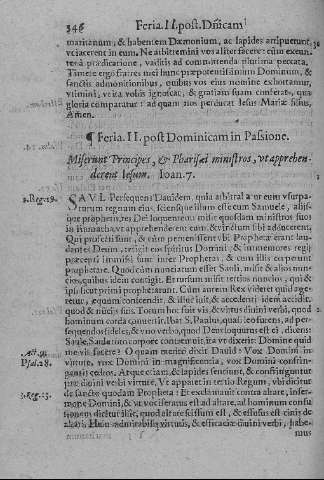 346 Feria. II. post. Dñicam
maritanum, & habentem Dæmonium, ac lapides arripuerunt,
vt iacerent in eum. Ne arbitremini vos aliter facere: cum
à prædicatione, vaditis ad committenda plurima peccata.
Timete ergo fratres mei hunc præpotentissimum Dominum, &
sanctis admonitionibus, quibus vos hesterno nomine exhortamur,
vtimini, vt ita vobis ignoscat, & gratiam suam conferat, qua
gloria comparatur: ad quam nos perducat Iesus Mariæ filius,
Amen.
¶ Feria. II. post Dominicam in Passione.
Miserunt Principes, & Pharisæi ministros, vt apprehen-
derent Iesum. Ioan. 7.
1. Reg. 19. SAVL Persequens Dauidem, quia arbitrabatur eum vsurpa-
turum regnum eius, sciensque illum esse cum Samuele, aliis-
que prophetis, res Dei loquentem: misit quosdam ministros suos
in Ramatha, vt apprehenderent eum, & vinctum sibi adducerent.
Qui profecti sunt, & cùm peruenissent vbi Prophetæ erant lau-
dantes Deum, irruit in eos spiritus Domini, & immemores regij
præcepti immissi sunt inter Prophetas, & cum illis cœperunt
prophetare. Quod cùm nunciatum esset Sauli, misit & alios nun-
cios, quibus idem contigit. Et rursum misit tertios nuncios, qui &
ipsi sicut primi prophetarunt. Cùm autem Rex videret quid age-
retur, equum conscendit, & illuc iuit, & accedenti idem accidit,
quod & nuncijs suis. Totum hoc fuit vis, & virtus diuini verbi, quod
hominum corda conuertit. Ibat S. Paulus, quasi leo furens, ad per-
sequendos fideles, & vno verbo, quod Deus loquutus est ei, dicens:
Saule, Saule toto corpore contremuit, ita vt dixerit: Domine quid
Act. 9. me vis facere? O quam meritò dicit Dauid: Vox Domini in
Psal. 28. virtute, vox Domini in magnificentia, vox Domini confrin-
gentis cedros. Atque etiam, & lapides scinduntur, & confringuntur
præ diuini verbi virtute. Vt apparet in tertio Regum, vbi dicitur
3. Reg. 13. de sancto quodam Propheta: Et exclamauit contra altare, in sermone
Domini, & vt vociferatus est ad altare, ad hominum confu-
sionem dicitur ibi, quod altare scissum est, & effusus est cinis de
altari. Huius admirabilis virtutis, & efficaciæ diuini verbi, habe-
mus